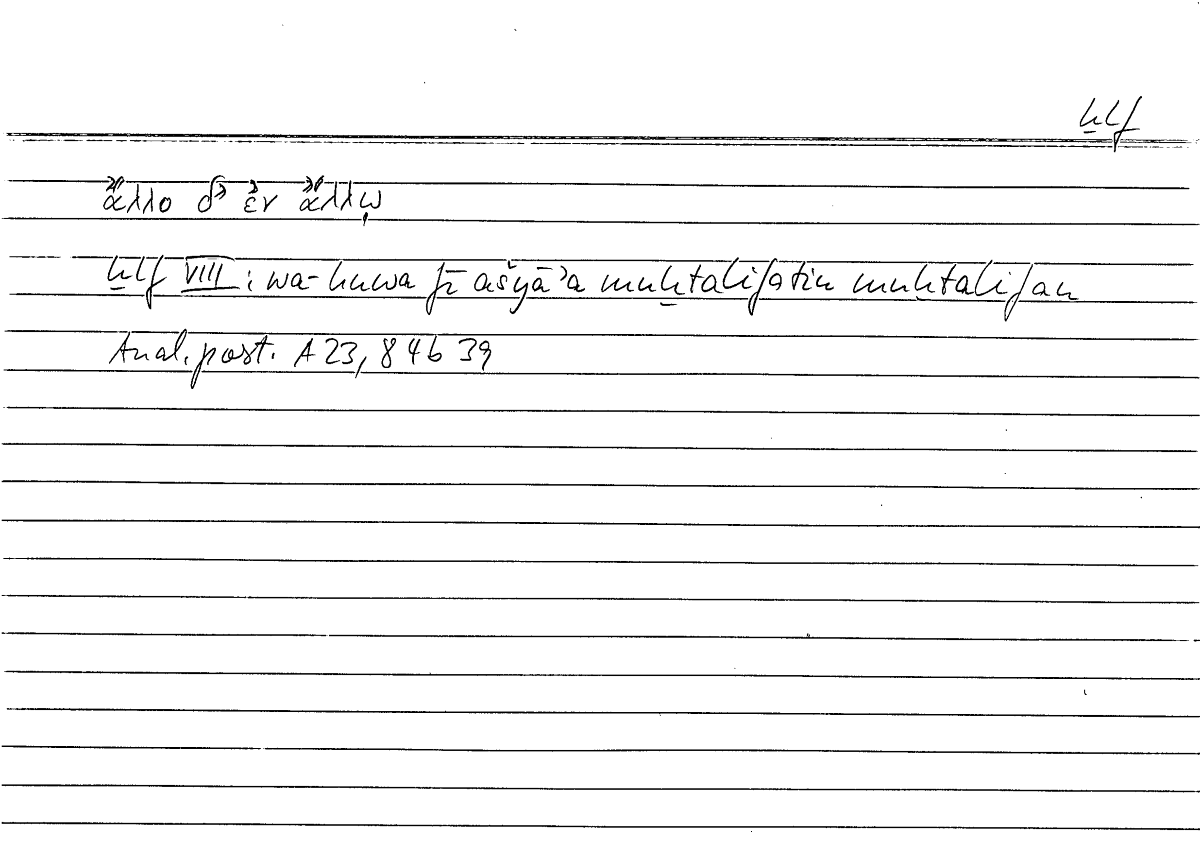 ḫlf
ἄλλο δ' ἐν ἄλλῳ
ḫlf VIII : wa-huwa fī ašyāʾa muḫtalifatin muḫtalifan
Anal. post. A 23, 84b 39